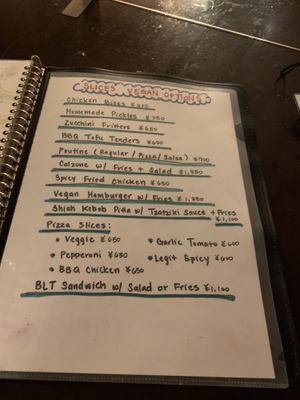 SLICES VEGAN OPTIONS
Chicken Bites ¥650
Homemade Pickles ¥350
Zucchini Fritters ¥650
BBQ Tofu Tenders ¥650
Poutine (Regular / Pizza / Salsa) ¥900
Calzone w/ Fries + Salad ¥1,350
Spicy Fried Chicken ¥650
Vegan Hamburger w/ Fries ¥1,250
Shish Kebob Pita w/ Tzatziki Sauce + Fries
¥1,100
Pizza Slices:
• Veggie ¥650 • Garlic Tomato ¥600
• Pepperoni ¥650 • Legit Spicy ¥600
• BBQ Chicken ¥650
BLT Sandwich w/ Salad or Fries ¥1,100